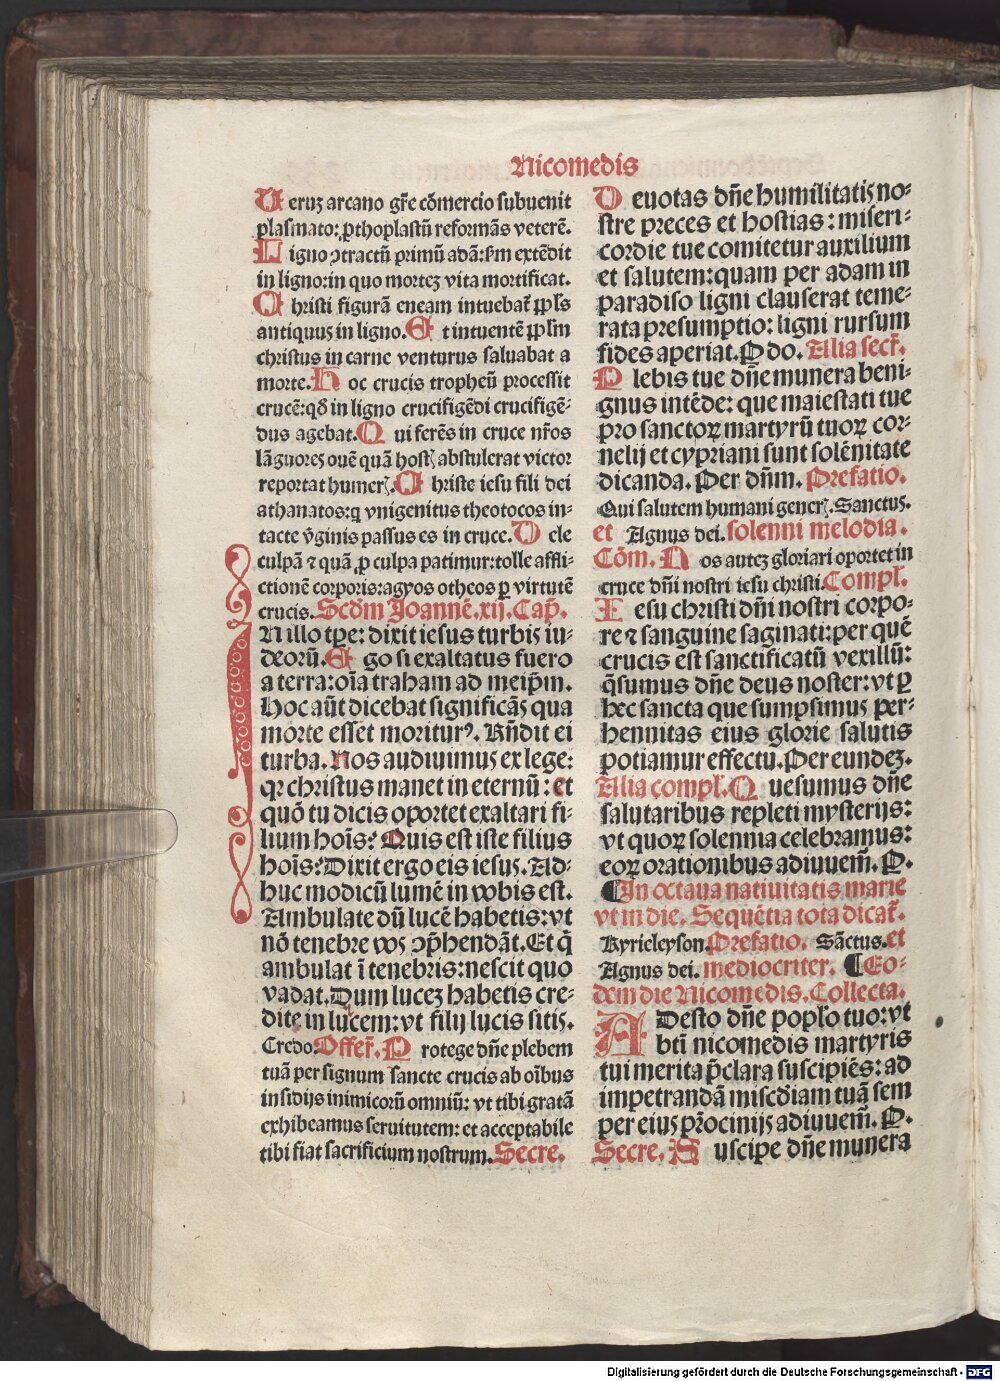 Nicomedis
Ueruʒ arcano gr̄e cōmercio subuenit
plasmato: ꝓthoplastū reformās veterē.
Ligno ꝯtractū primū adā: s̄m extēdit
in ligno: in quo morteʒ vita mortificat.
Christi figurā eneam intuebat̄ ppl̄s
antiquus in ligno. Et intuentē ppl̄m
christus in carne venturus saluabat a
morte. Hoc crucis tropheū processit
crucē: qd̄ in ligno crucifigēdi crucifigē⸗
dus agebat. Qui ferēs in cruce nr̄os
lāguores ouē quā host⁊ abstulerat victor
reportat humer⁊. Christe iesu fili dei
athanatos: q vnigenitus theotocos in⸗
tacte v̄ginis passus es in cruce. Dele
culpā ⁊ quā ꝓ culpa patimur: tolle affli⸗
ctionē corporis: agyos otheos ꝑ virtutē
crucis. Scd̄m Joannē. xij. Cap̄.
In illo tꝑe: dixit iesus turbis iu⸗
deorū. Ego si exaltatus fuero
a terra: oīa traham ad meip̄m.
Hoc aūt dicebat significās qua
morte esset moriturꝰ. Rn̄dit ei
turba. Nos audiuimus ex lege:
qꝛ christus manet in eternū: et
quō tu dicis oportet exaltari fi⸗
lium hoīs? Quis est iste filius
hoīs? Dixit ergo eis iesus. Ad⸗
huc modicū lumē in vobis est.
Ambulate dū lucē habetis: vt
nō tenebre vos ꝯp̄hendāt. Et q̄
ambulat ī tenebris: nescit quo
vadat. Dum luceʒ habetis cre⸗
dite in lucem: vt filij lucis sitis.
Credo. Offer̄. Protege dn̄e plebem
tuā per signum sancte crucis ab oībus
insidijs inimicorū omniū: vt tibi gratā
exhibeamus seruitutem: et acceptabile
tibi fiat sacrificium nostrum. Secre.
Deuotas dn̄e humilitatis no⸗
stre preces et hostias: miseri⸗
cordie tue comitetur auxilium
et salutem: quam per adam in
paradiso ligni clauserat teme⸗
rata presumptio: ligni rursum
fides aperiat. P do. Alia secr̄.
Plebis tue dn̄e munera beni⸗
gnus intēde: que maiestati tue
pro sanctoꝝ martyrū tuoꝝ cor⸗
nelij et cypriani sunt solēnitate
dicanda. Per dn̄m. Prefatio.
Qui salutem humani gener⁊. Sanctus.
et Agnus dei. solenni melodia.
Cōm. Nos auteʒ gloriari oportet in
cruce dn̄i nostri iesu christi. Compl̄.
Iesu christi dn̄i nostri corpo⸗
re ⁊ sanguine saginati: per quē
crucis est sanctificatū vexillū:
q̄sumus dn̄e deus noster: vt ꝑ
hec sancta que sumpsimus per⸗
hennitas eius glorie salutis
potiamur effectu. Per eundeʒ.
Alia compl̄. Quesumus dn̄e
salutaribus repleti mysterijs:
vt quoꝝ solennia celebramus:
eoꝝ orationibus adiuuem̄. P.
¶In octaua natiuitatis marie
vt in die. Sequētia tota dicat̄.
Kyrieleyson. Prefatio. Sāctus. et
Agnus dei. mediocriter. ¶Eo⸗
dem die Nicomedis. Collecta.
ADesto dn̄e popl̄o tuo: vt
btī nicomedis martyris
tui merita p̄clara suscipiēs: ad
impetrandā misc̄diam tuā sem
per eius pr̄ocinijs adiuuem̄. P.
Secre. Suscipe dn̄e munera
Digitalisierung gefördert durch die Deutsche Forschungsgemeinschaft - DFG